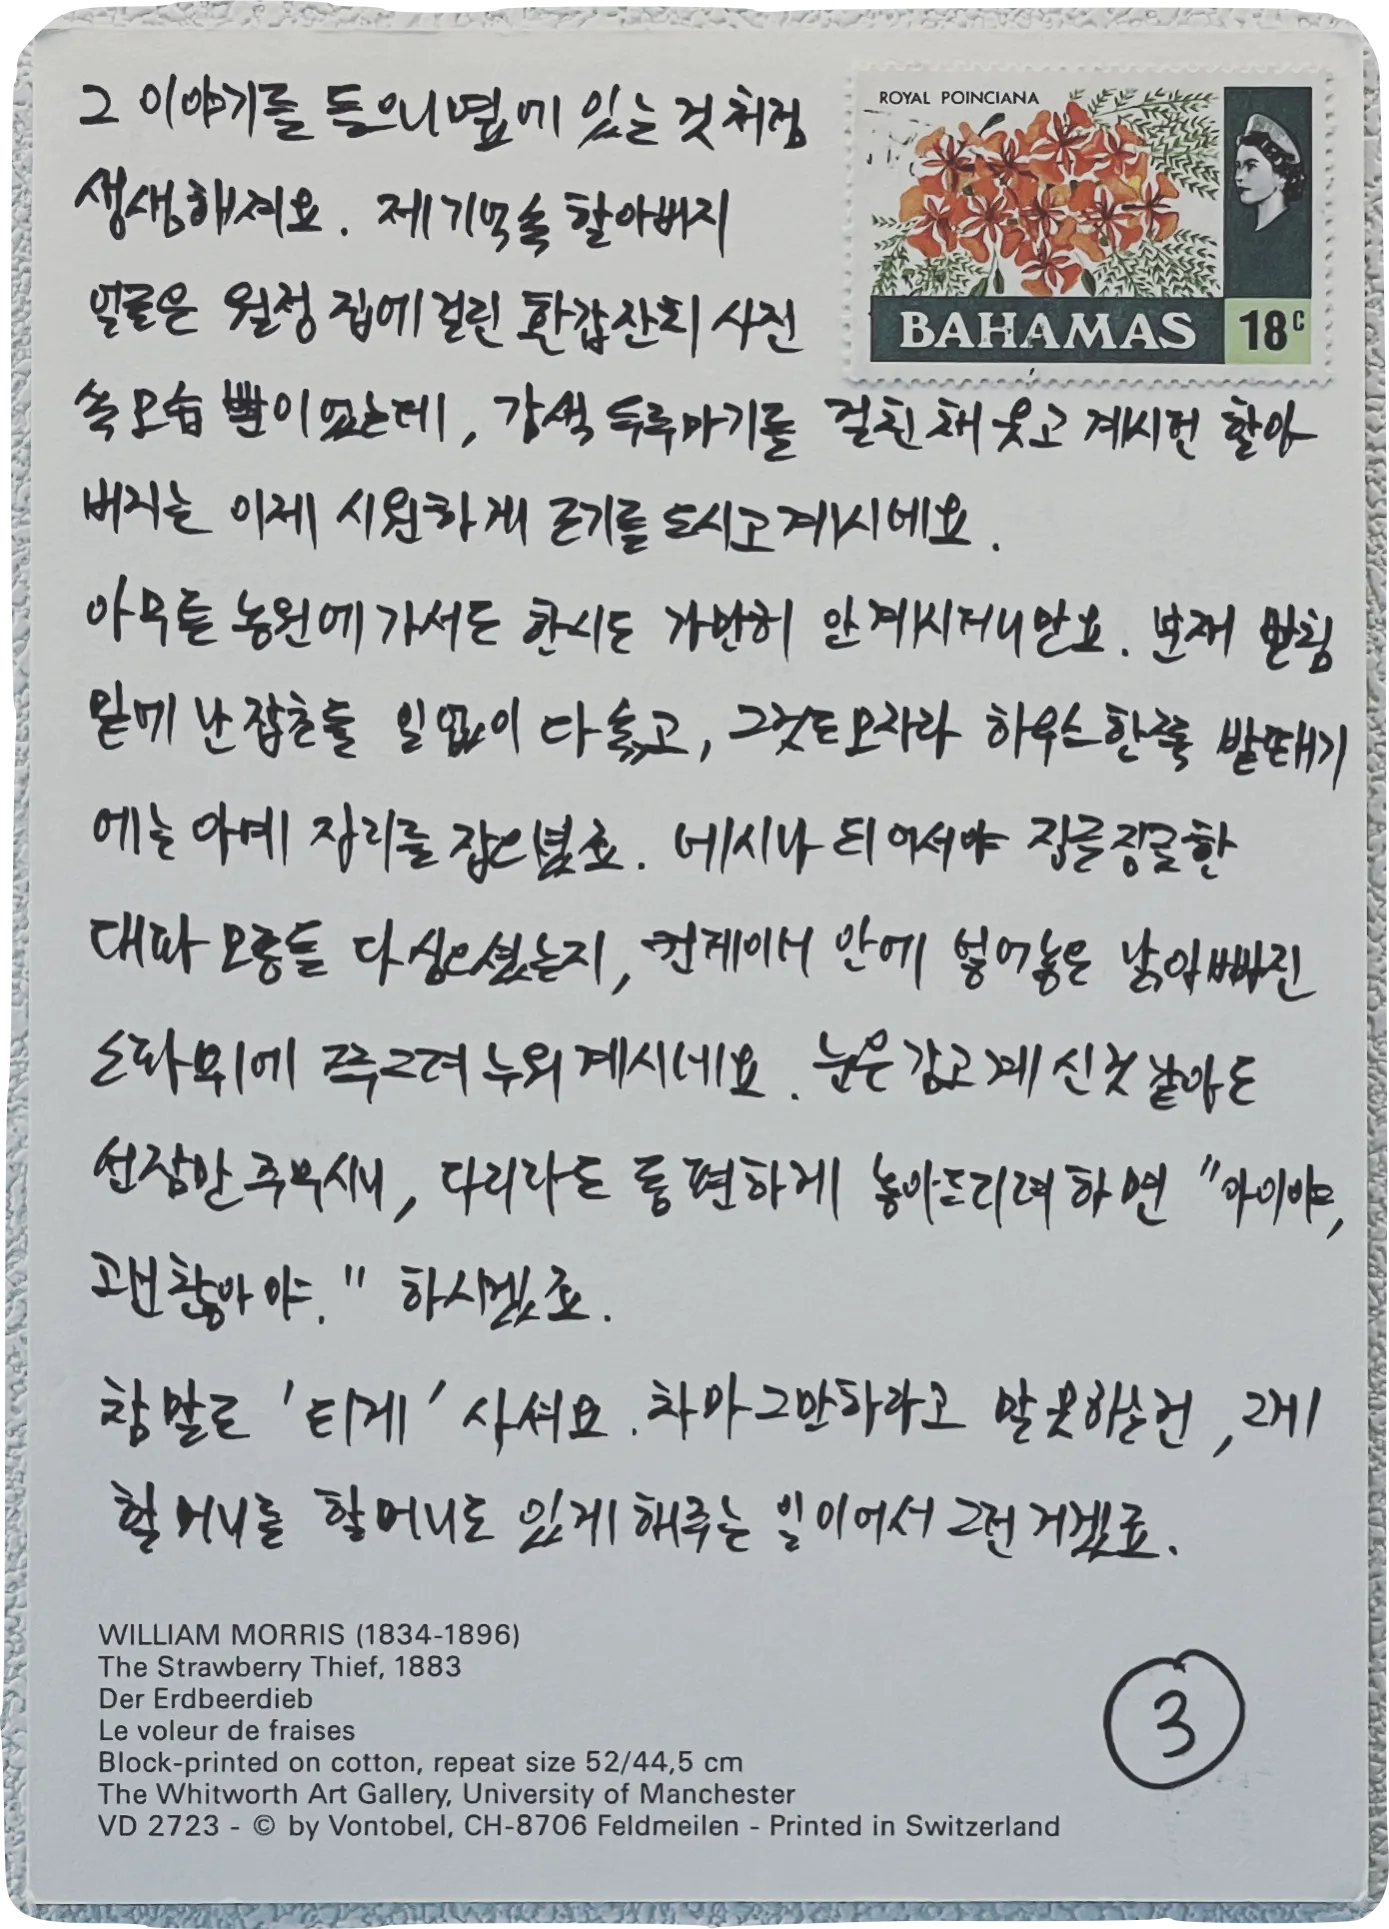 ROYAL POINCIANA
BAHAMAS 18c
그 이야기를 들으니 옆에 있는 것처럼
생생해져요. 제 기억 속 할아버지
얼굴은 월정 집에 걸린 환갑잔치 사진
속 모습 뿐이었는데, 갈색 두루마기를 걸친 채 웃고 계시던 할아
버지는 이제 시원하게 트기를 도시고 계시네요.
아무튼 농원에 가서도 한시도 가만히 안 계시다니깐요. 번재 받침
밑에 난 잡초들 일없이 다 솎고, 그것도 모자라 하우스 한쪽 밭떼기
에는 아예 자리를 잡으셨죠. 네시나 되어서야 길쭉길쭉한
대파 모종들 다 심으셨는지, 컨테이너 안에 넣어놓은 낡아빠진
소파 위에 쭈그려 누워 계시네요. 눈은 감고 계신 것 같아도
선잠만 주무시니, 다리라도 좀 편하게 놓아드리려 하면 "아이야,
괜찮아 야." 하시겠죠.
참말로 '되게' 사셔요. 차마 그만하라고 말 못하는 건, 그게
할머니를 할머니로 있게 해주는 일이어서 그런 거겠죠.
WILLIAM MORRIS (1834-1896)
The Strawberry Thief, 1883
Der Erdbeerdieb
Le voleur de fraises
Block-printed on cotton, repeat size 52/44,5 cm
The Whitworth Art Gallery, University of Manchester
VD 2723 - © by Vontobel, CH-8706 Feldmeilen - Printed in Switzerland
3